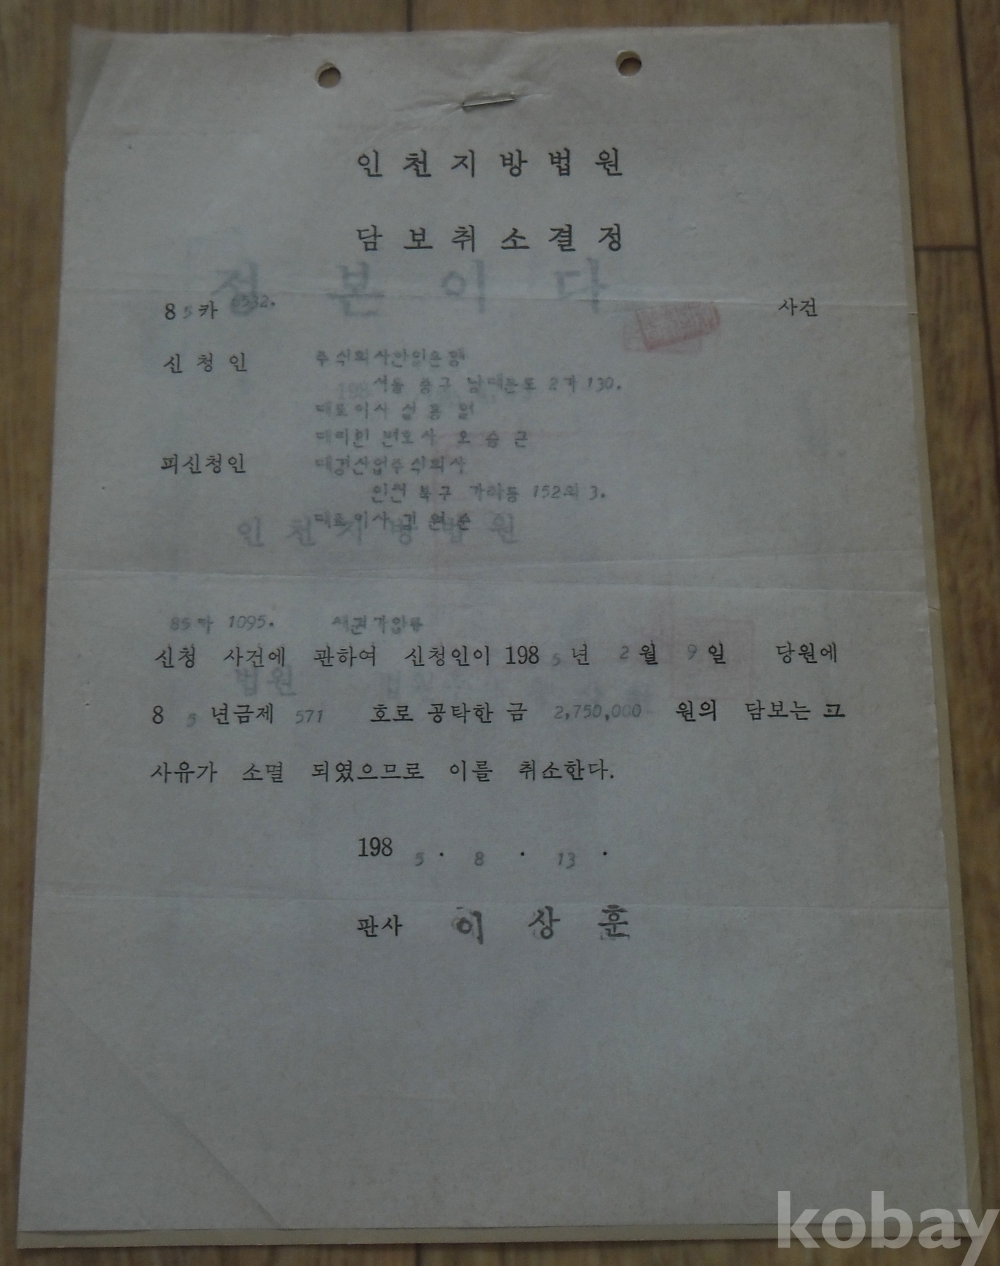 인천지방법원
담보취소결정
정본이다
85카 6532. 사건
신청인 주식회사한일은행
서울 중구 남대문로 2가 130.
대표이사
대리인 변호사 오승근
피신청인 대경산업주식회사
인천 북구 152의 3.
대표이사
인천지방법원
85카 1095. 채권가압류
신청 사건에 관하여 신청인이 1985년 2월 9일 당원에
법원
85년금제 571 호로 공탁한 금 2,750,000 원의 담보는 그
사유가 소멸 되였으므로 이를 취소한다.
1985. 8. 13.
판사 이상훈
kobay